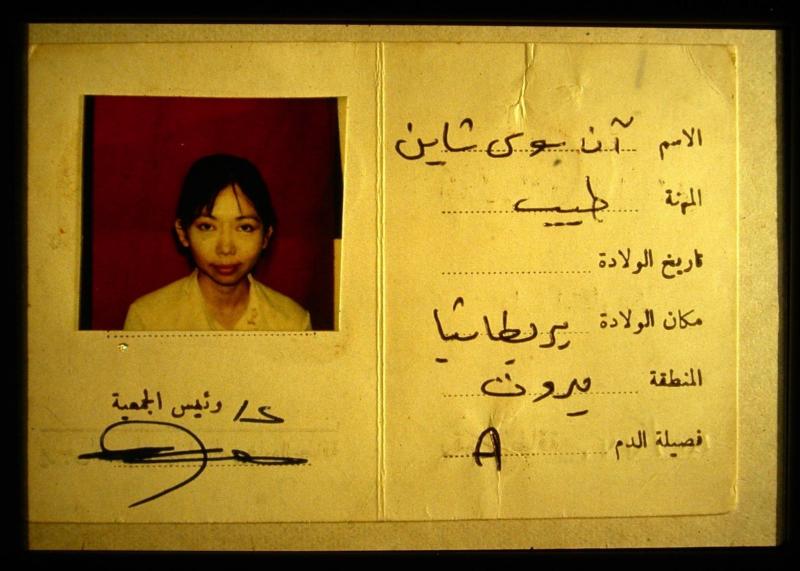 الاسم آن سوي شاين
المهنة طبيب
تاريخ الولادة
مكان الولادة بريطانيا
المنطقة بيروت
فصيلة الدم A
رئيس الجمعية